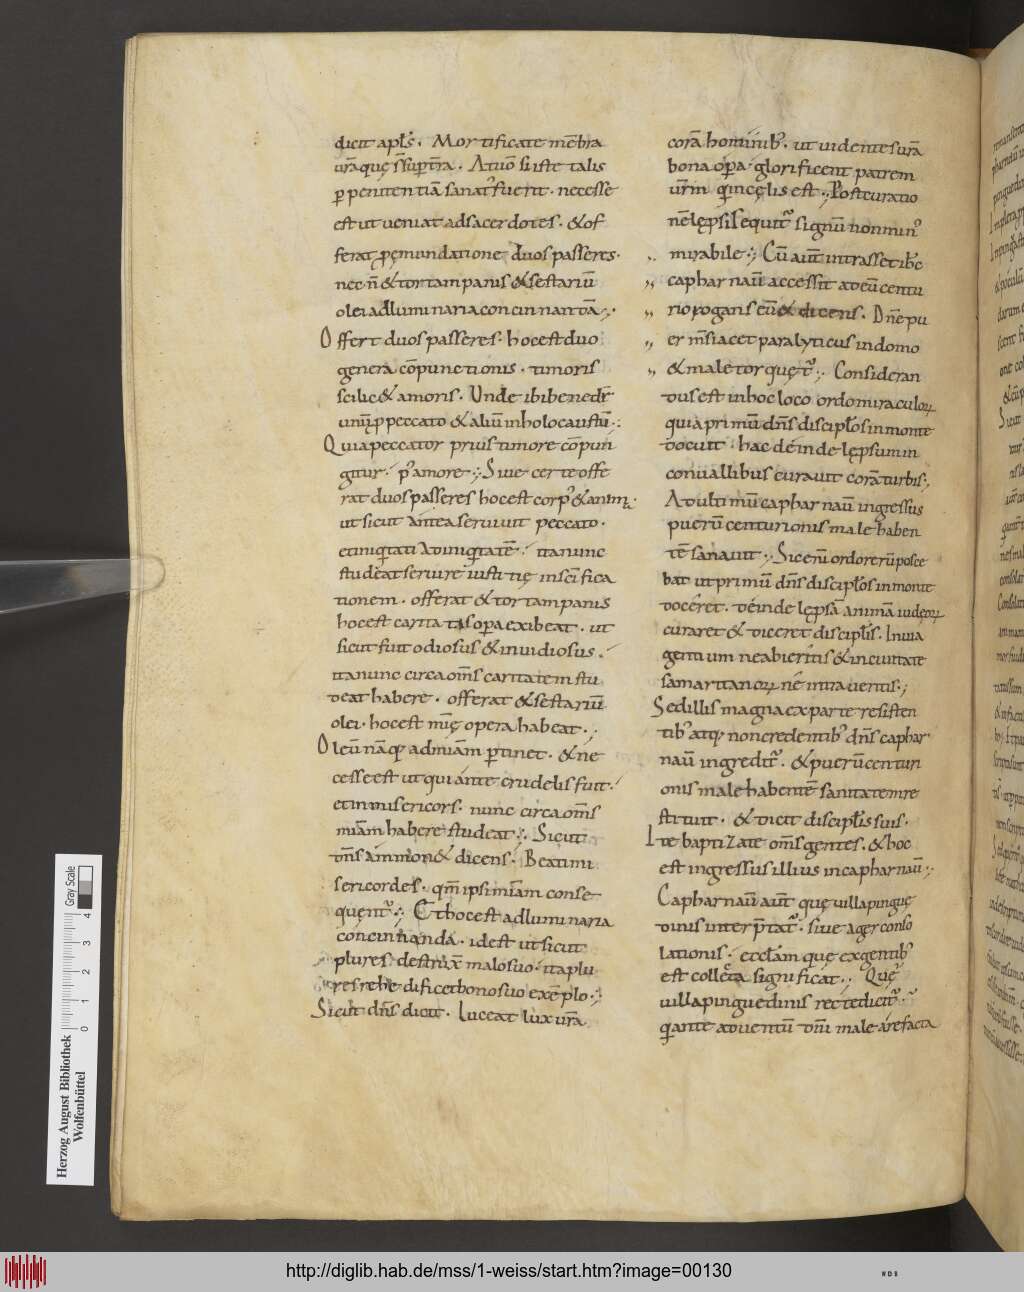 dicit apl̄s. Mortificate mēbra
ur̄a quę st̄ sup̄ t̄ra. At uō si iste talis
p penitentiā sanat' fuerit. necesse
est ut ueniat ad sacerdotes. & of
ferat p emundatione duos passeres.
nec n̄ & tortam panis & sestariū
olei ad luminaria concinnanda.
Offert duos passeres. hoc est duo
genera cōpunctionis. timoris
scilic& amoris. Unde ibi
unū p peccato & aliū in holocaustū.
Quia peccator prius timore cōpun
gitur. p' amore. Siue certe offe
rat duos passeres hoc est corp' & animā
ut sicut antea seruiuit peccato.
et iniquitati ad iniquitatē. ita nunc
studeat seruire iustitię in sc̄ifica
tionem. offerat & tortam panis
hoc est caritatis opera exibeat. ut
sicut fuit odiosus & inuidiosus.
ita nunc circa om̄s caritatem stu
deat habere. offerat & sestariū
olei. hoc est mīę opera habeat.
Oleū nāq; ad mīam ptinet. & ne
cesse est ut qui ante crudelis fuit.
et inmisericors. nunc circa om̄s
mīam habere studeat. Sicut
dn̄s ammon& dicens. Beati mi
sericordes. qm̄ ipsi mīam conse
quent'. Et hoc est ad luminaria
concinnanda. id est ut sicut
plures destrux̄ malo suo. ita plu
res rehedificet bono suo exēplo.
Sicut dn̄s dicit. Luceat lux ur̄a
corā hominib'. ut uideant ur̄a
bona opa. & glorificent patrem
ur̄m qui in cęlis est. Post curatio
nē lępsi sequit' signū non min'
mirabile. Cū aut̄ intrasset ih̄c
capharnaū accessit ad eū centu
rio rogans eū & dicens. Dn̄e pu
er m̄s iacet paralyticus in domo
& male torquęt'. Consideran
dus est in hoc loco ordo miraculoꝝ
quia primū dn̄s discipl̄os in monte
docuit. hac deinde lępsum in
conuallibus curauit corā turbis.
Ad ultimū capharnaū ingressus
puerū centurionis male haben
tē sanauit. Sic enī ordo rerū posce
bat ut primū dn̄s discipl̄os in monte
doceret. deinde lępsā animā iudęoꝝ
curaret & diceret discipl̄is. In uia
gentium ne abieritis & in ciuitate
samaritanoꝝ nē intraueritis.
Sed illis magna ex parte resisten
tib' atq; non credentib' dn̄s caphar
naū ingredit'. & puerū centuri
onis male habentē sanitatem re
stituit. & dicit discipl̄is suis.
Ite baptizate om̄s gentes. & hoc
est ingressus illius in capharnaū.
Capharnaū aut̄ quę uilla pingue
dinis interp̄tat'. siue ager conso
lationis. ecclam quę ex gentib'
est collecta significat. Quę
uilla pinguedinis recte dicit'.
qi ante aduentū dn̄i male arefacta
Herzog August Bibliothek
Wolfenbüttel
Gray Scale
0 1 2 3 4
http://diglib.hab.de/mss/1-weiss/start.htm?image=00130